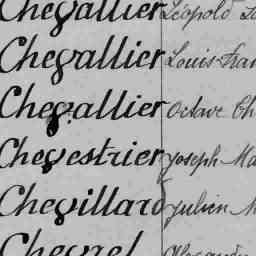 Chevallier Léopold
Chevallier Louis
Chevallier Octave
Chevestrier Joseph
Chevillard Julien
Chevrel